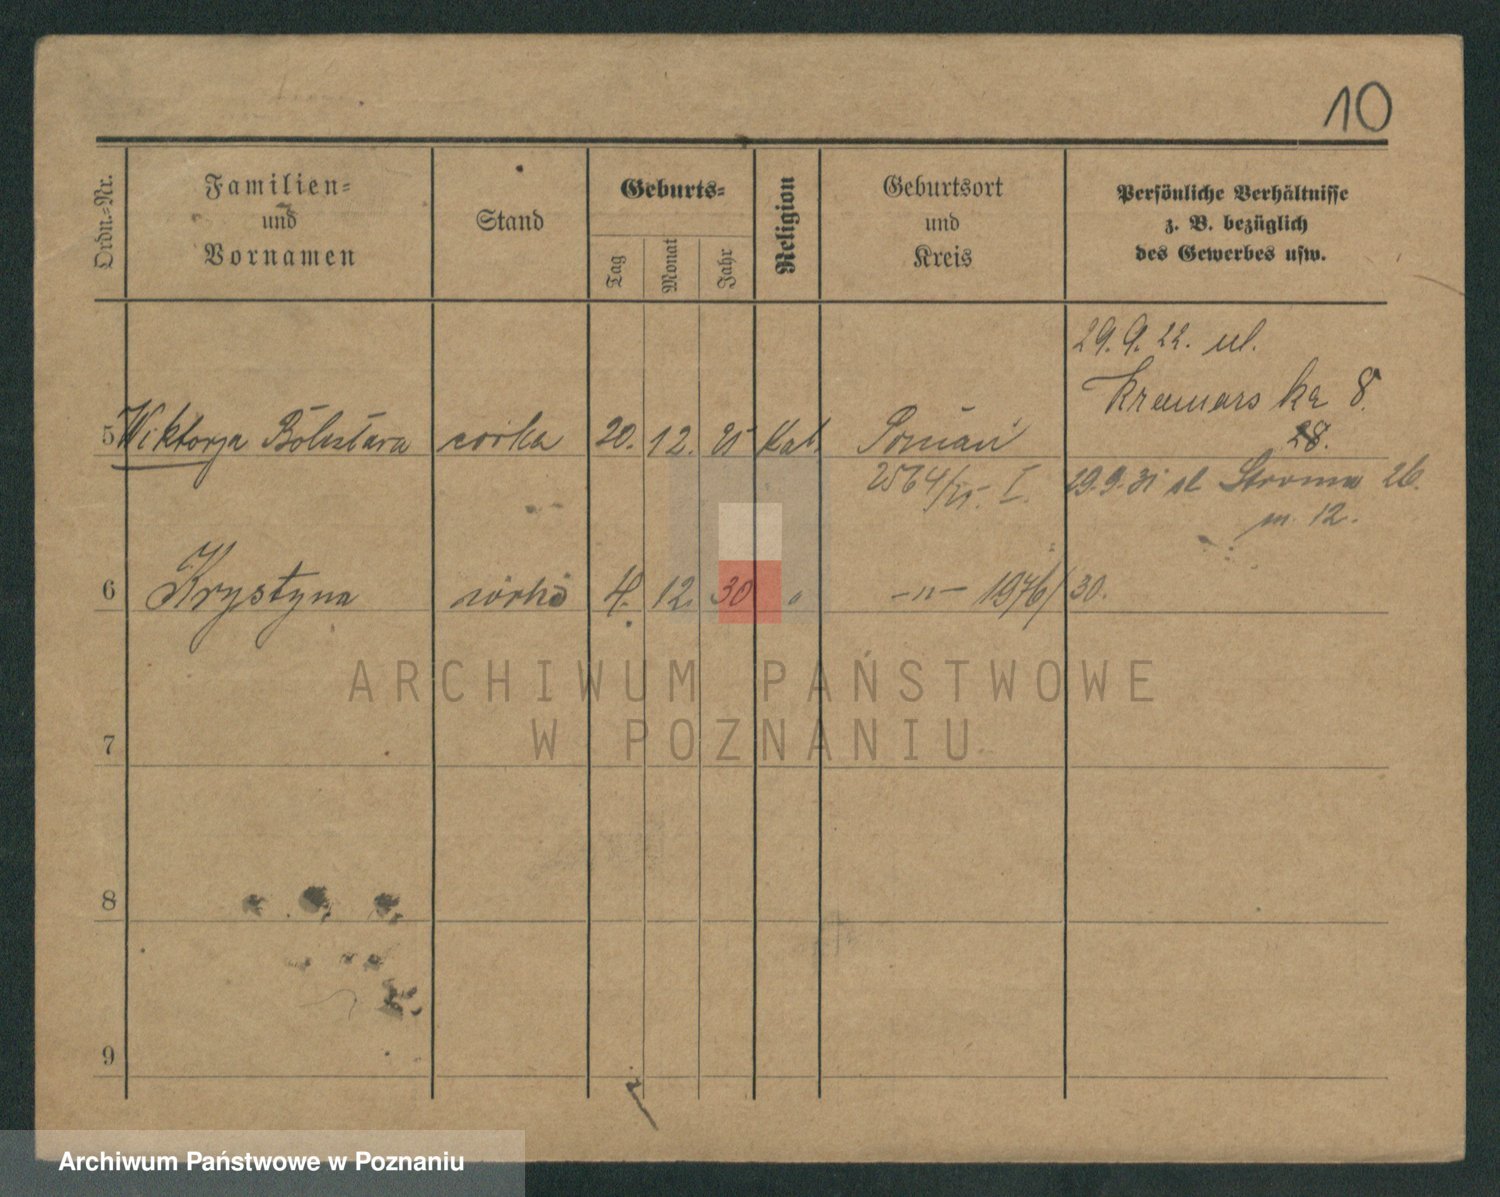 10
Ordn.=Nr.
Familien=
und
Vornamen
Stand
Geburts=
Tag
Monat
Jahr
Religion
Geburtsort
und
Kreis
Persönliche Verhältnisse
z. B. bezüglich
des Gewerbes usw.
29. 9. 22. ul.
Kramarska 8.
28.
5 Wiktorja córka 20. 12. 25 Kat Poznań
2564/25. I. 29.9.31 ul Stroma 26.
m. 12.
6 Krystyna córka 4. 12. 30 " -"- 1976/30.
7
8
9
ARCHIWUM PAŃSTWOWE
W POZNANIU
Archiwum Państwowe w Poznaniu